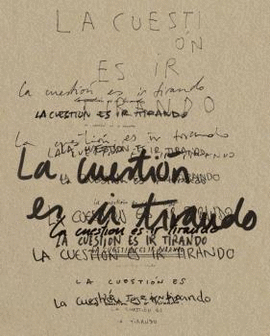 LA CUESTI
ÓN
ES IR
TIRANDO
la cuestión es ir tirando
LA CUESTIÓN ES IR TIRANDO
la cuestión es ir tirando
LA CUESTIÓN ES IR TIRANDO
La cuestión
es ir tirando
la cuestión es ir tirando
LA CUESTIÓN ES IR TIRANDO
LA CUESTIÓN ES IR TIRANDO
LA CUESTIÓN ES
La cuestión
tirando
LA CUESTIÓN ES
IR TIRANDO